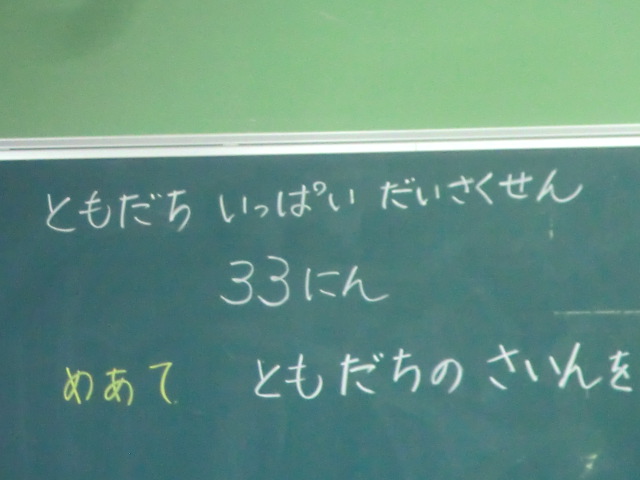 ともだち いっぱい だいさくせん
33にん
めあて ともだちの さいんを